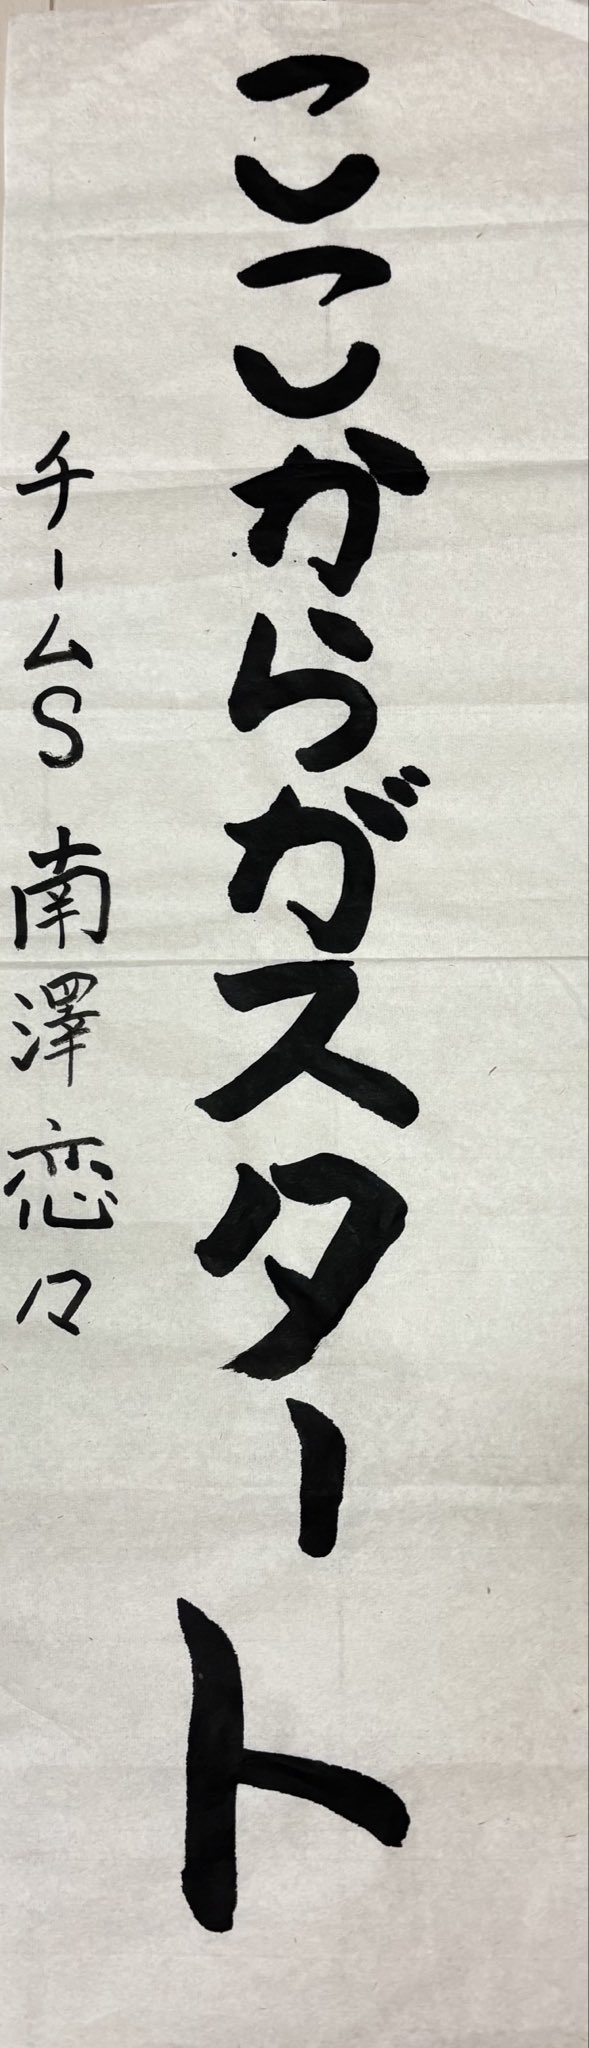 ここからがスタート
チームS 南澤恋々